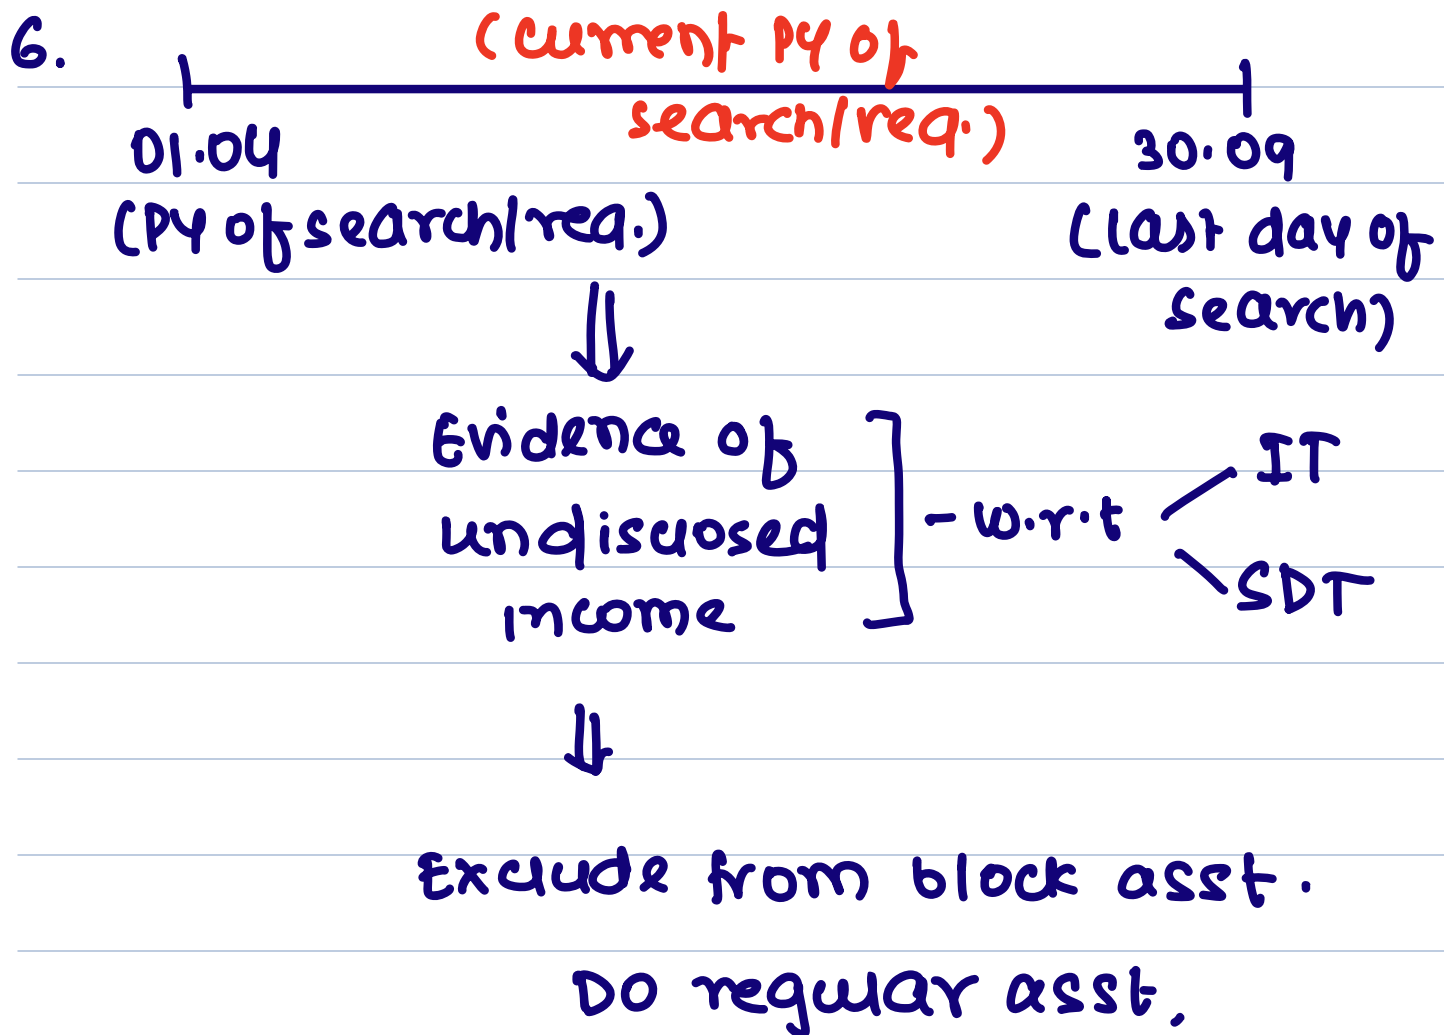 6.
(current PY of
search/req.)
01.04
30.09
(PY of search/req.)
(last day of
search)
Evidence of
undisclosed
income
- w.r.t
IT
SDT
Exclude from block asst.
Do regular asst.